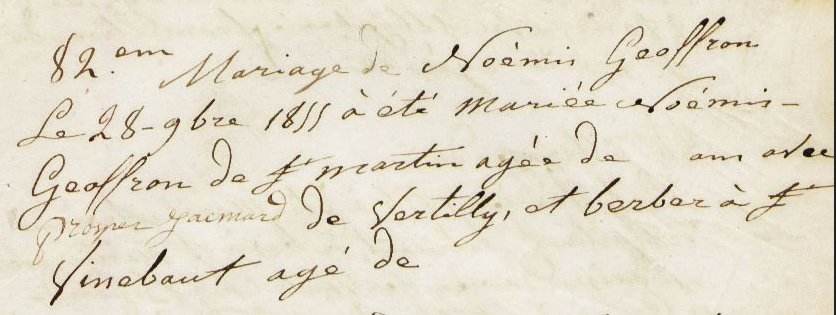 82.em Mariage de Noémis Geoffron
Le 28-9bre 1855 à été mariée Noémis-
Geoffron de St martin agée de an avec
prosper jacmard de Vertilly, et berber à St
Vinebaut agé de